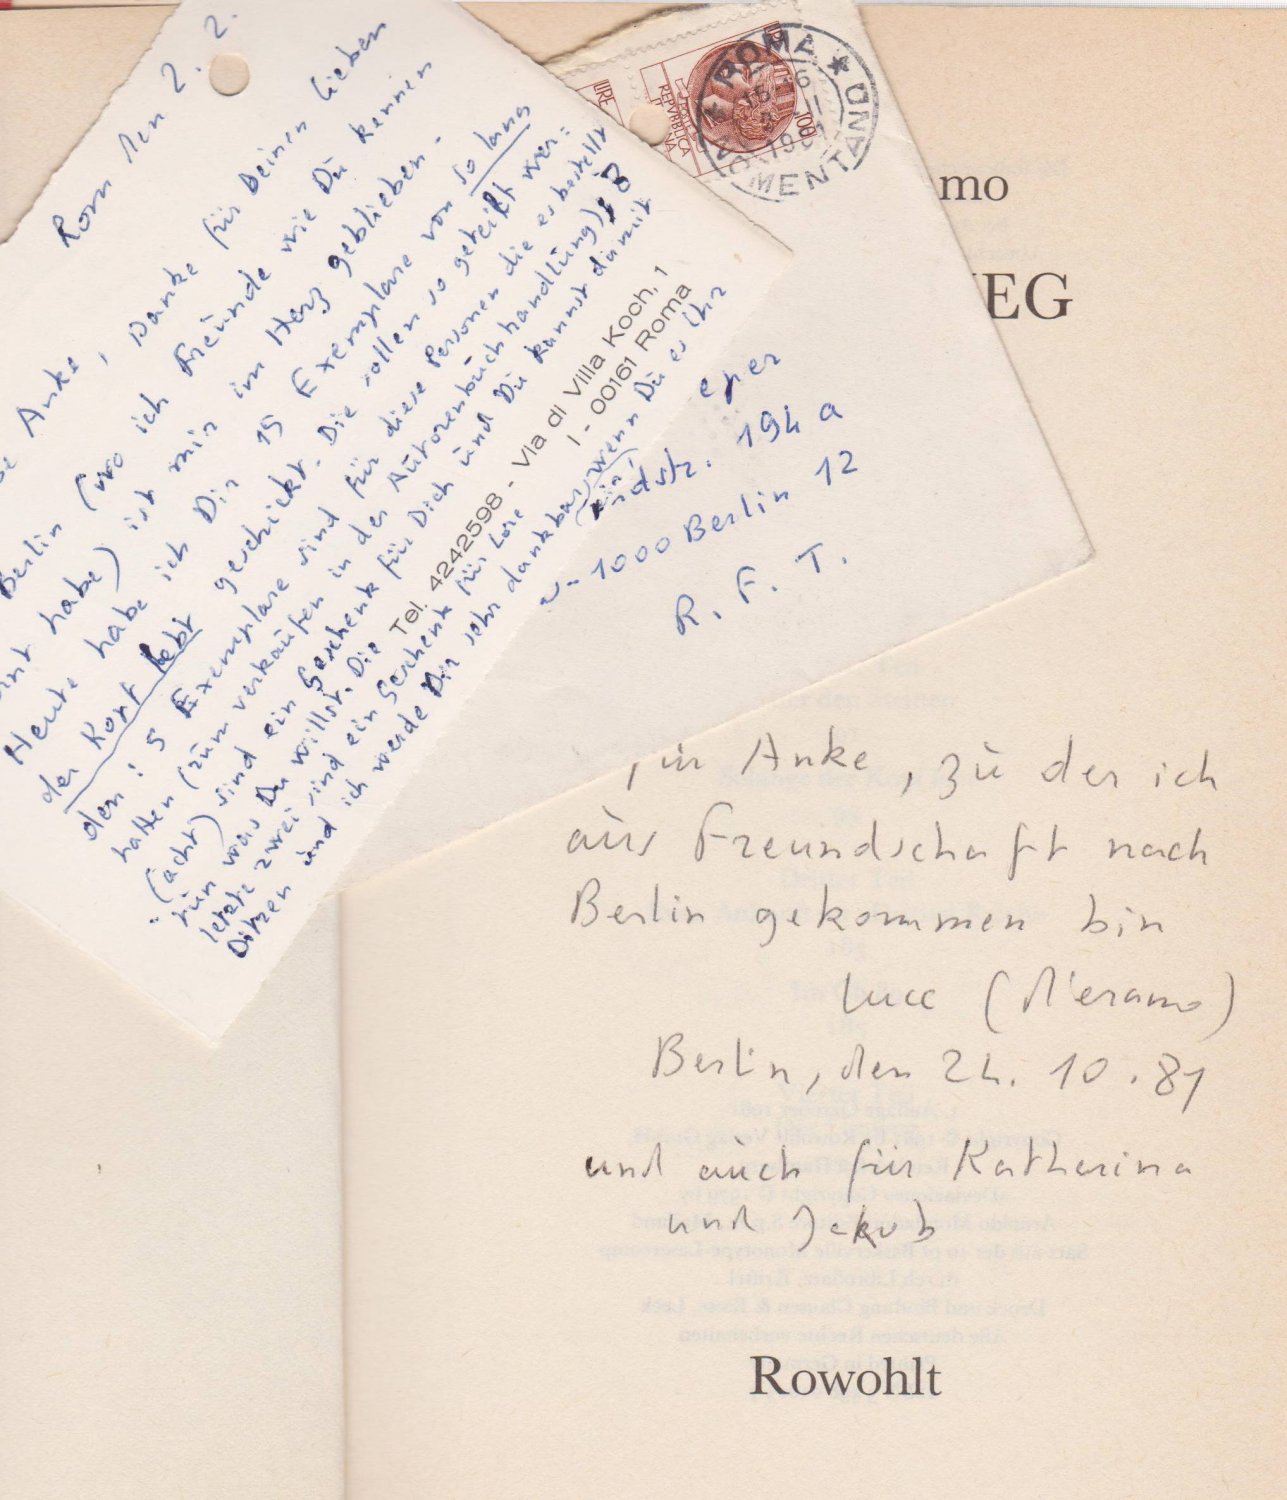 Rom den 2. 2.
Anke, Danke für Deinen lieben
Berlin (wo ich Freunde wie Du kennen
habe) ist mir im Herz geblieben.
Heute habe ich Dir 15 Exemplare von so lang
der Kopf lebt geschickt. Die sollen so geteilt wer=
den: 5 Exemplare sind für diese Personen die es bestellt
hatten (zum verkaufen in der Autorenbuchhandlung); 8
(acht) sind ein Geschenk für Dich und Du kannst damit
tun was Du willst. Die
letzte zwei sind ein Geschenk für Lore
Ditzen und ich werde Dir sehr dankbar, wenn Du es ihr
Tel. 4242598 - Via di Villa Koch, 1
I - 00161 Roma
LIRE
REPVBBLICA
100
ROMA
NOMENTANO
194 a
1000 Berlin 12
R. F. T.
mo
EG
für Anke, zu der ich
aus Freundschaft nach
Berlin gekommen bin
Luce (d'eramo)
Berlin, den 24. 10. 81
und auch für Katharina
und Jakob
Rowohlt